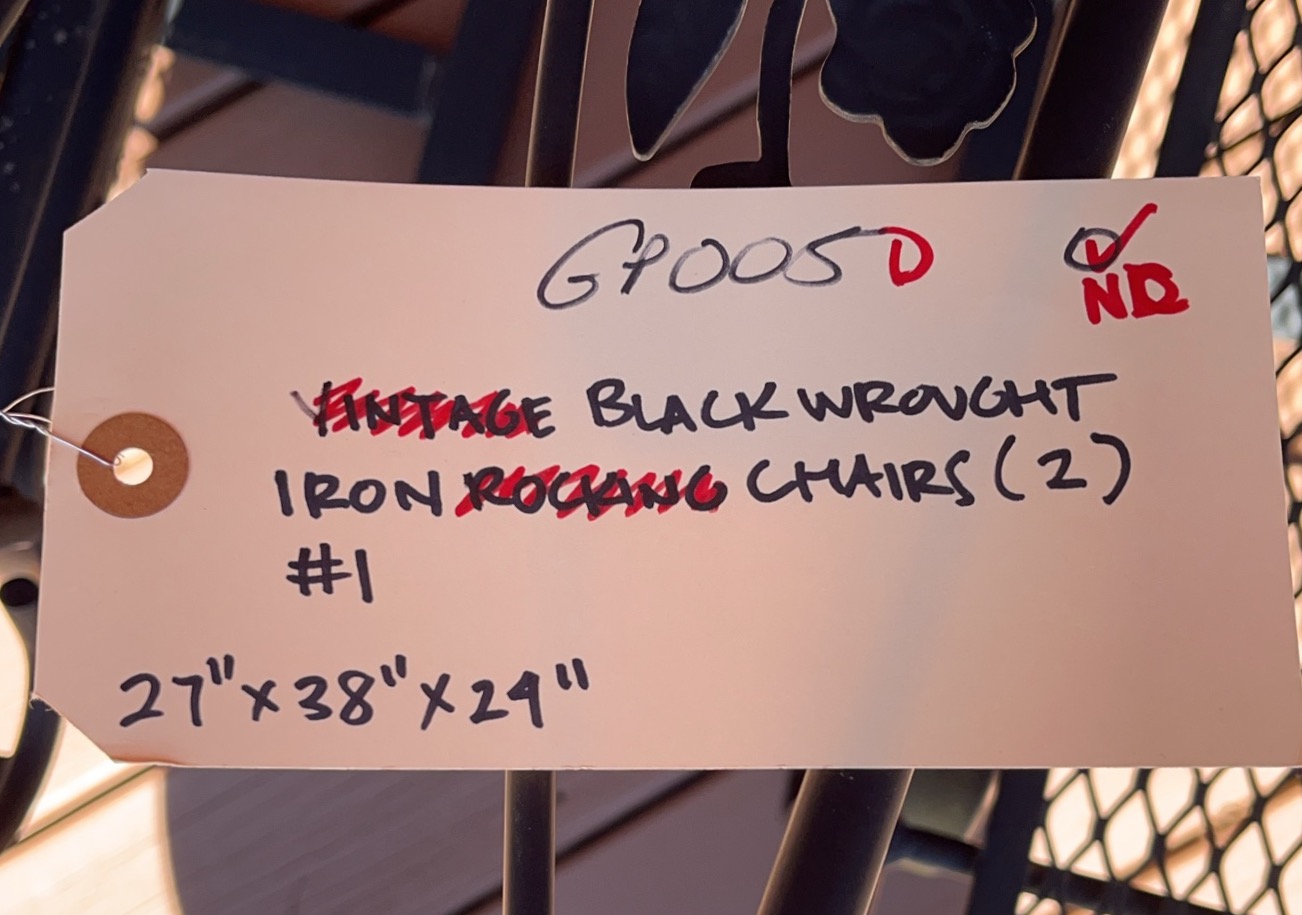 GP005D
ND
VINTAGE BLACK WROUGHT
IRON ROCKING CHAIRS (2)
#1
27" x 38" x 24"